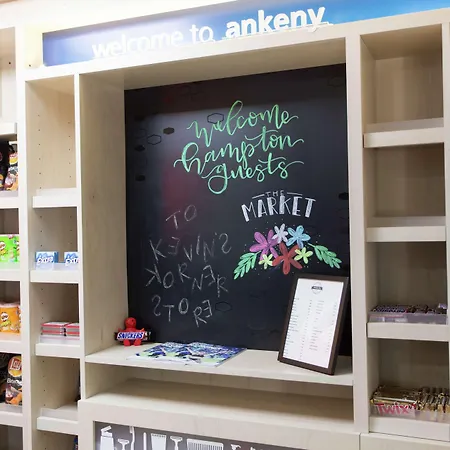 welcome to ankeny
Welcome
hampton
guests
THE
MARKET
TO
KEVIN'S
KORNER
STORE
SNICKERS
TWIX